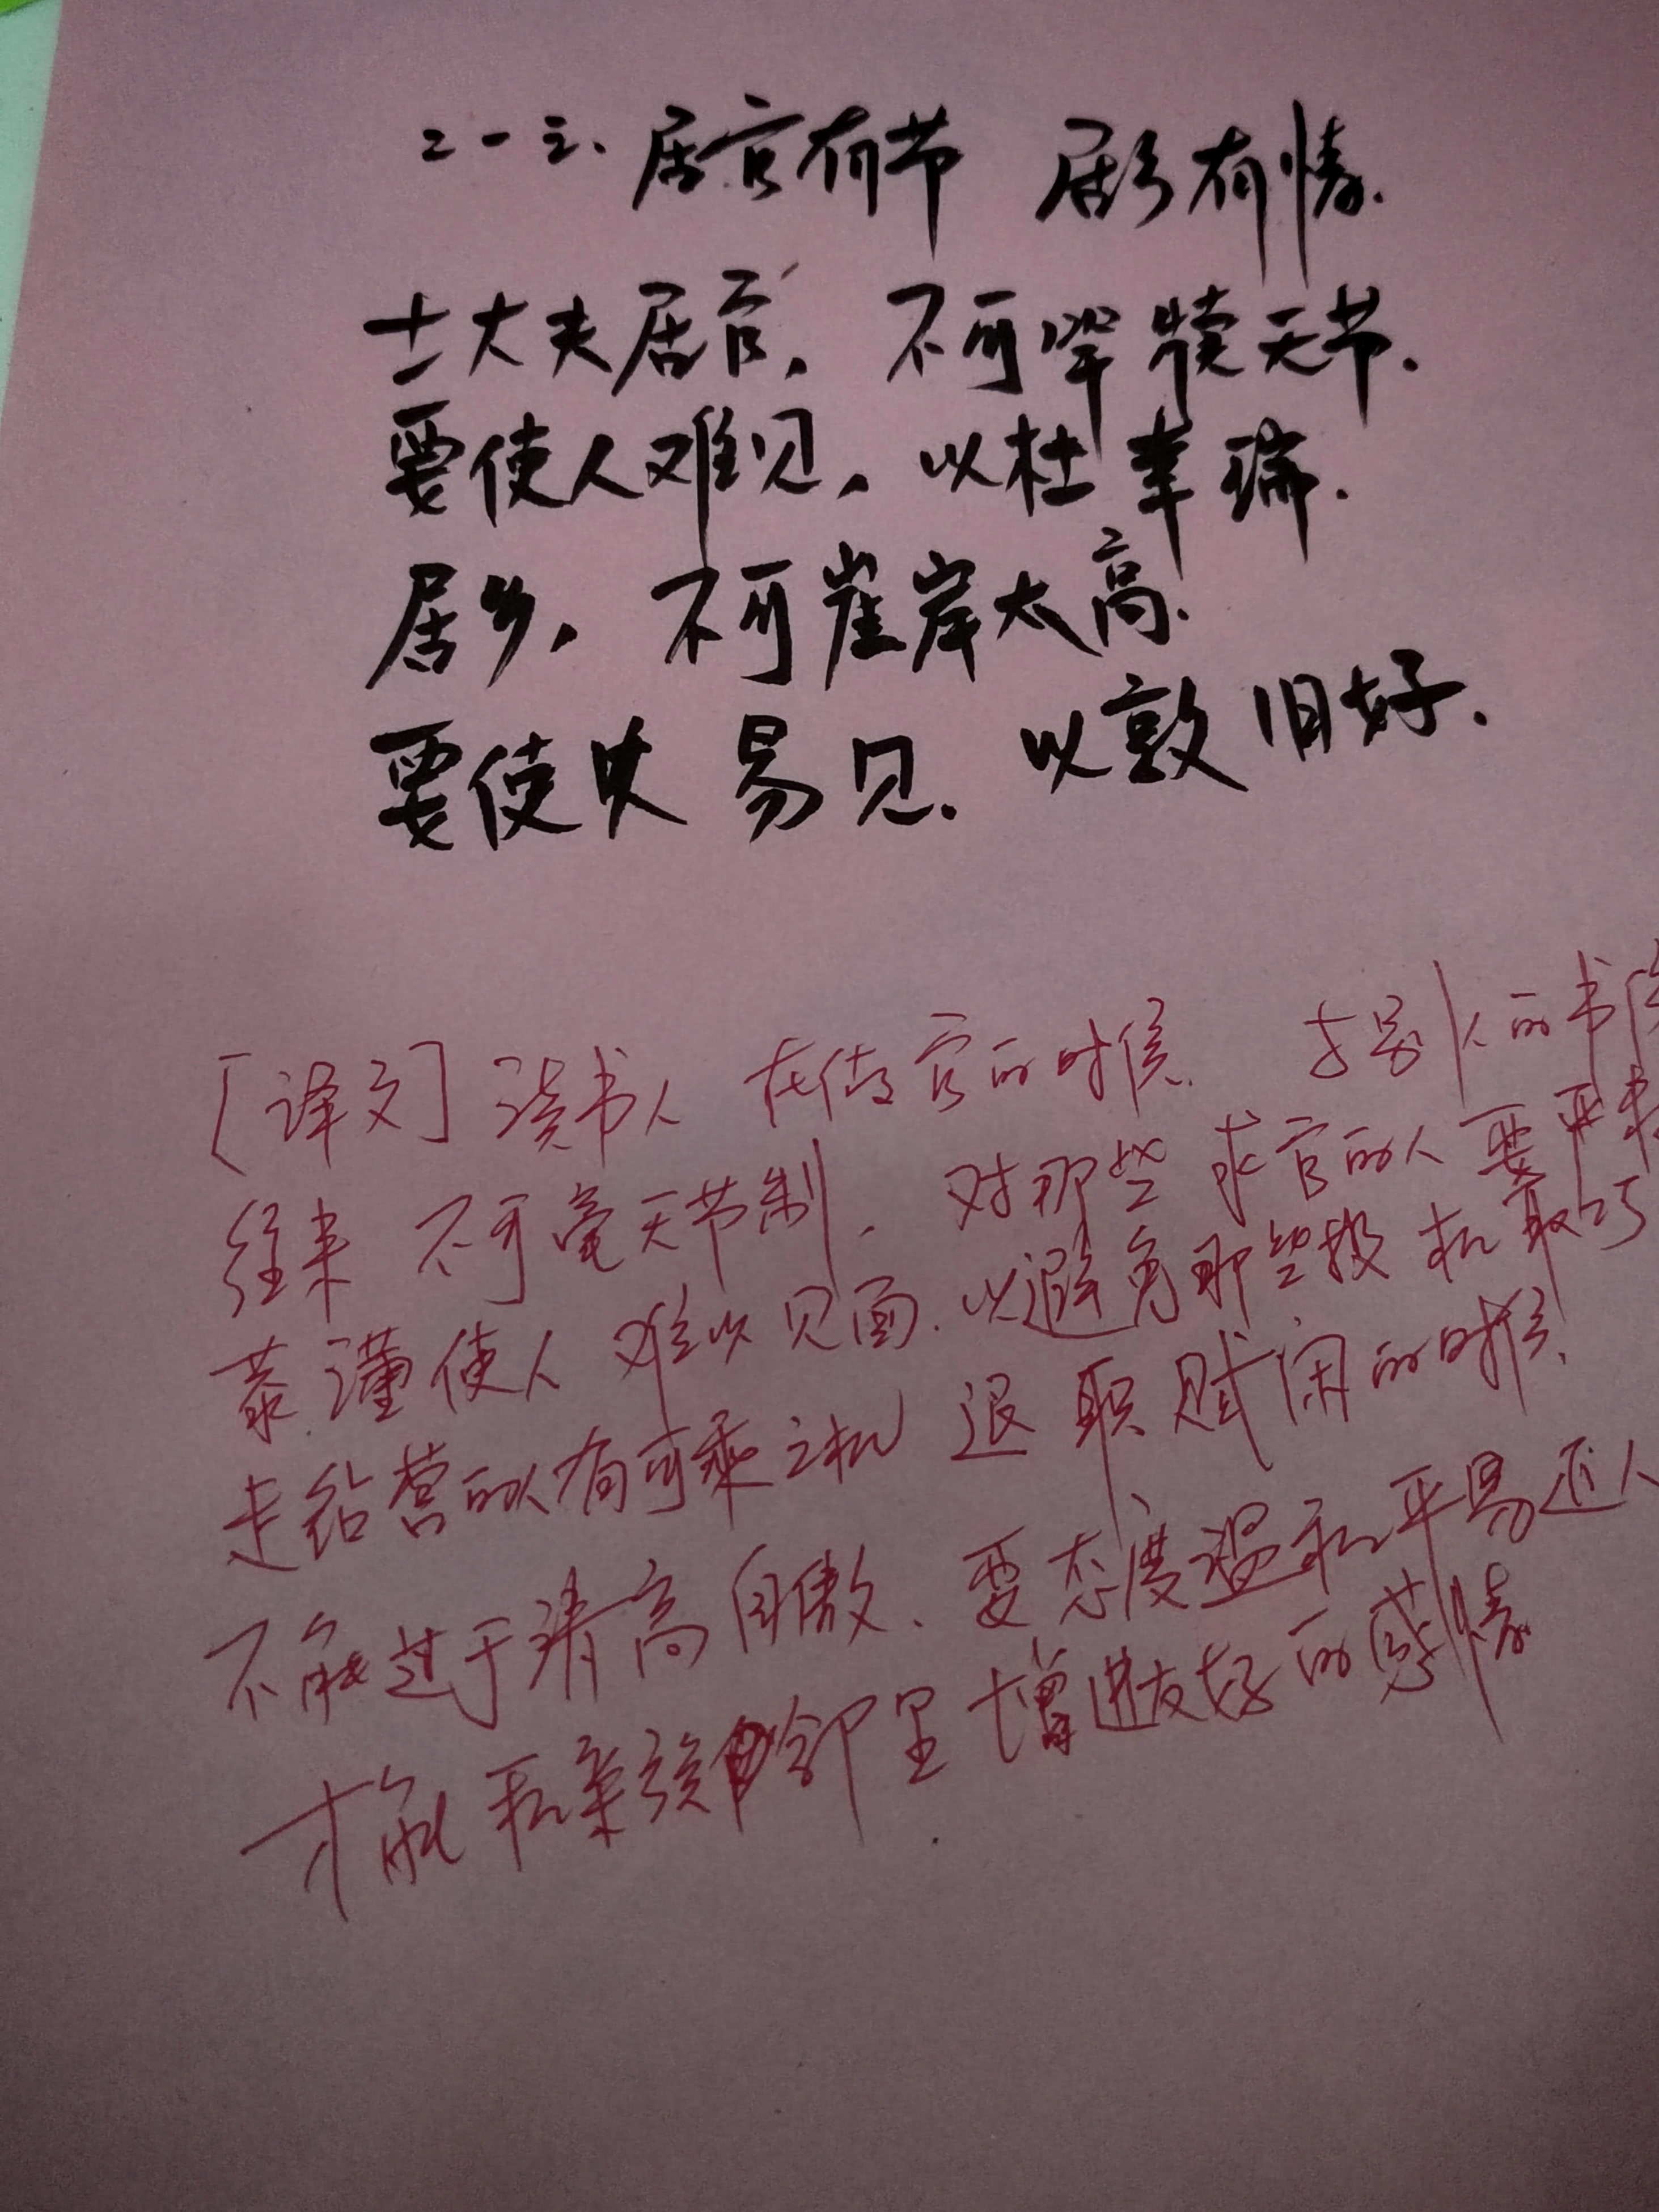 二一三、居官有节 居乡有情.
士大夫居官, 不可竿牍无节.
要使人难见, 以杜幸端.
居乡, 不可崖岸太高.
要使人易见. 以敦旧好.
[译文] 读书人 在做官的时候. 与别人的书信
往来 不可毫无节制, 对那些 求官的人 要严
恭谨使人 难以见面. 以避免那些投机取巧
走钻营的人有可乘之机 退职赋闲的时候,
不能过于清高自傲、要态度温和平易近人
才能和亲族邻里增进友好的感情